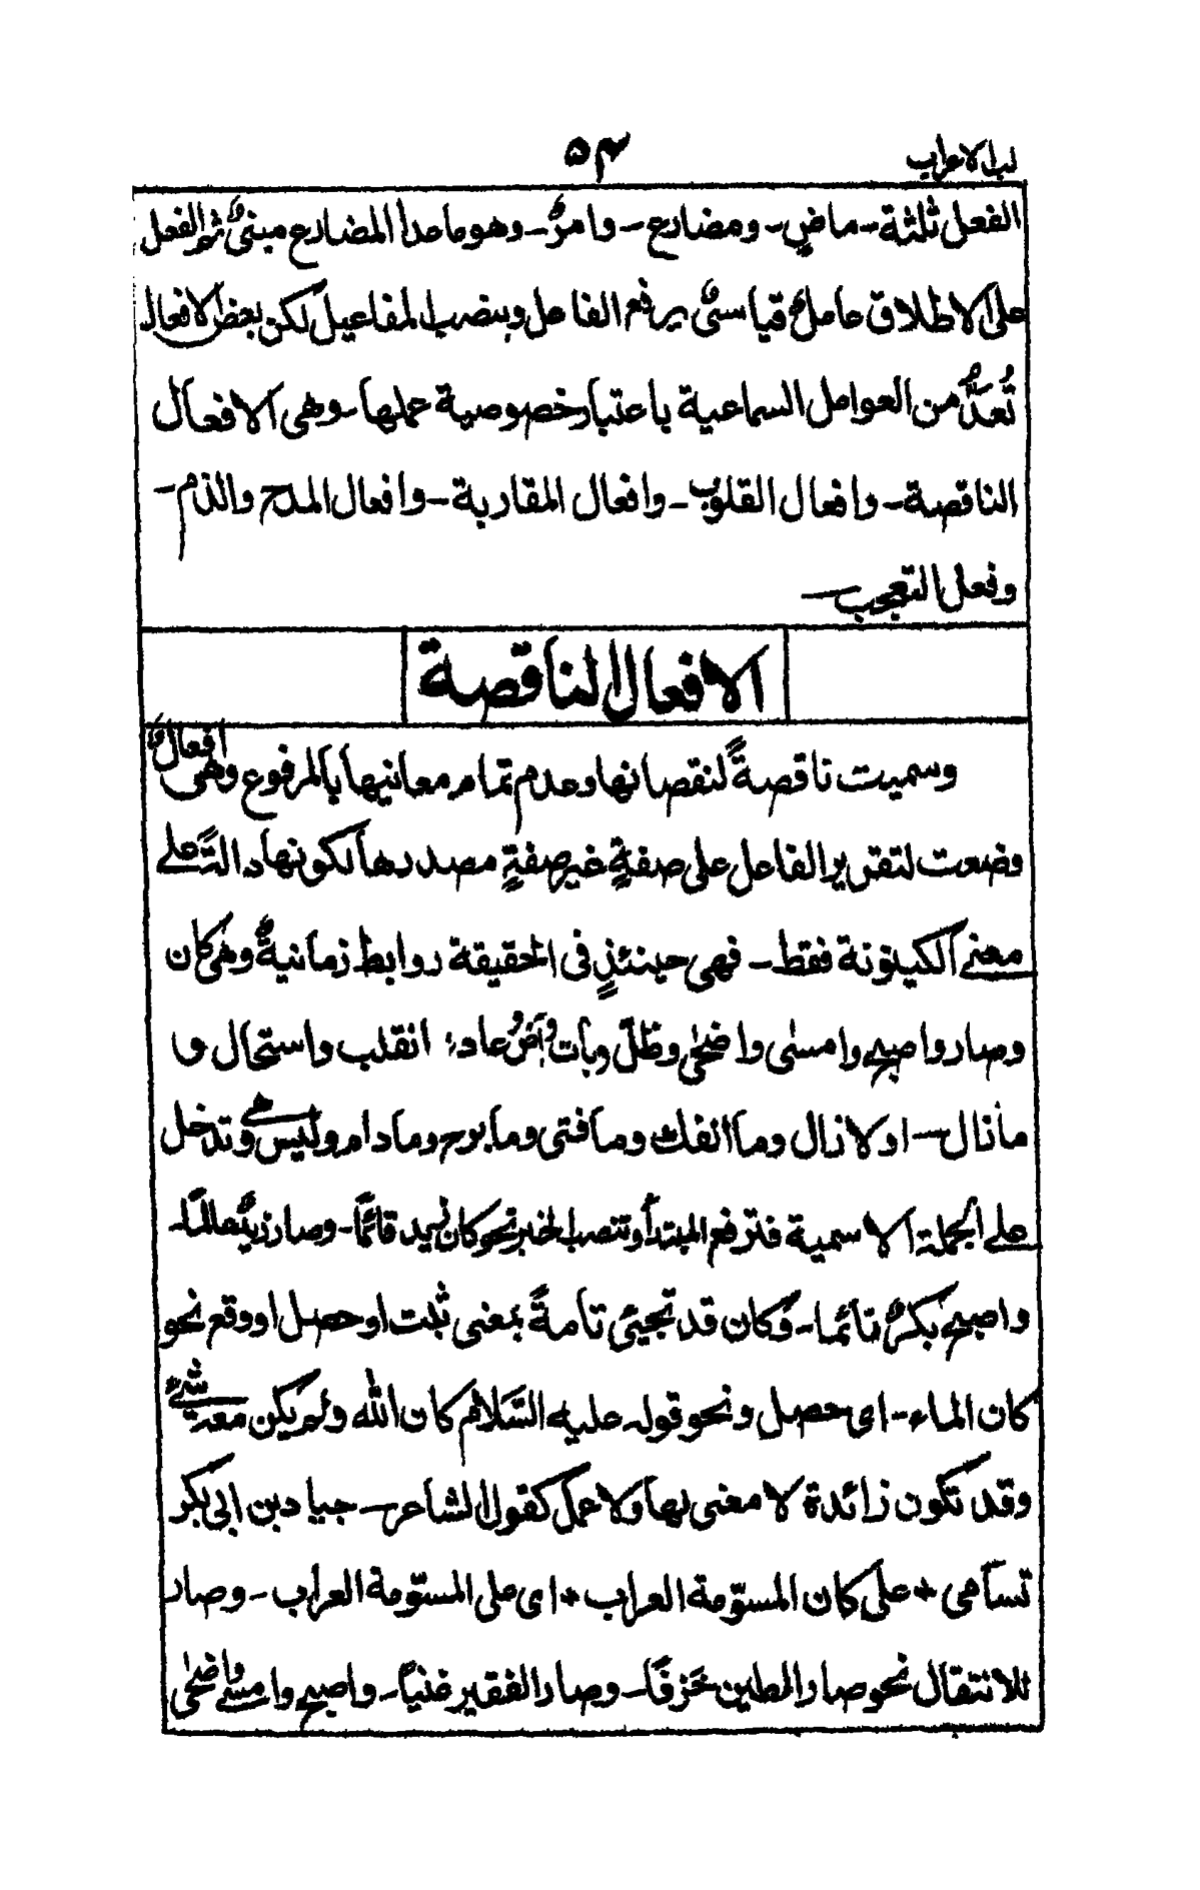 لب الاعراب
۵۴
الفعل ثلثة - ماضٍ - ومضارع - وامرٌ - وهو ماعدا المضارع مبنىٌ ثم الفعل
على الاطلاق عاملٌ قياسىٌ يرفع الفاعل وينصب المفاعيل لكن بعض الافعال
تُعَدُّ من العوامل السماعية باعتبار خصوصية عملها - وهى الافعال
الناقصة - وافعال القلوب - وافعال المقاربة - وافعال المدح والذم -
وفعلى التعجب -
الافعال الناقصة
وسميت ناقصةً لنقصانها وعدم تمام معانيها بالمرفوع وهى افعالٌ
وضعت لتقرير الفاعل على صفةٍ غير صفةٍ مصدرها لكونها دالة على
معنى الكينونة فقط - فهى حينئذٍ فى الحقيقة روابط زمانيةٌ وهى كان
وصار واصبح وامسى واضحٰى وظلّ وبات وآضَ وعاد، انقلب واستحال و
مازال - او لازال وما انفك وما فتى وما برح ومادام وليس هى وتدخل
على الجملة الاسمية فترفع المبتدأ وتنصب الخبر نحو كان زيد قائمًا - وصار زيدٌ عالمًا -
واصبح بكرٌ نائما - وكان قد تجيئ تامةً بمعنى ثبت او حصل او وقع نحو
كان الماء - اى حصل ونحو قوله عليه السّلام كان الله ولم يكن معه شيئٌ
وقد تكون زائدة لا معنى لها ولا عمل كقول الشاعر - جياد بن ابى بكر
تسآمى + على كان المسوّمة العراب + اى على المسوّمة العراب - وصار
للانتقال نحو صار الطين خزفًا - وصار الفقير غنيًا - واصبح وامسى واضحٰى